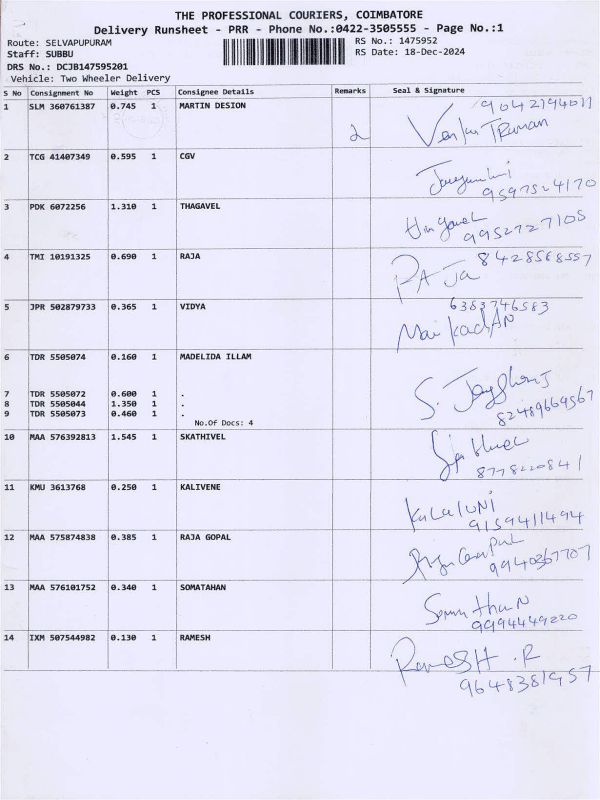 THE PROFESSIONAL COURIERS, COIMBATORE
Delivery Runsheet - PRR - Phone No.:0422-3505555 - Page No.:1
Route: SELVAPUPURAM RS No.: 1475952
Staff: SUBBU RS Date: 18-Dec-2024
DRS No.: DCJB147595201
Vehicle: Two Wheeler Delivery
S No Consignment No Weight PCS Consignee Details Remarks Seal & Signature
1 SLM 360761387 0.745 1 MARTIN DESION 9042194011
2
2 TCG 41407349 0.595 1 CGV
9597524170
3 PDK 6072256 1.310 1 THAGAVEL
9952727105
4 TMI 10191325 0.690 1 RAJA 8428568557
RAJa
5 JPR 502879733 0.365 1 VIDYA 6383746583
6 TDR 5505074 0.160 1 MADELIDA ILLAM
7 TDR 5505072 0.600 1 .
8 TDR 5505044 1.350 1 .
9 TDR 5505073 0.460 1 .
No.Of Docs: 4
10 MAA 576392813 1.545 1 SKATHIVEL
8778220841
11 KMU 3613768 0.250 1 KALIVENE
9159411494
12 MAA 575874838 0.385 1 RAJA GOPAL
9940367707
13 MAA 576101752 0.340 1 SOMATAHAN
9994449220
14 IXM 507544982 0.130 1 RAMESH
RAMESH .R
9648381957